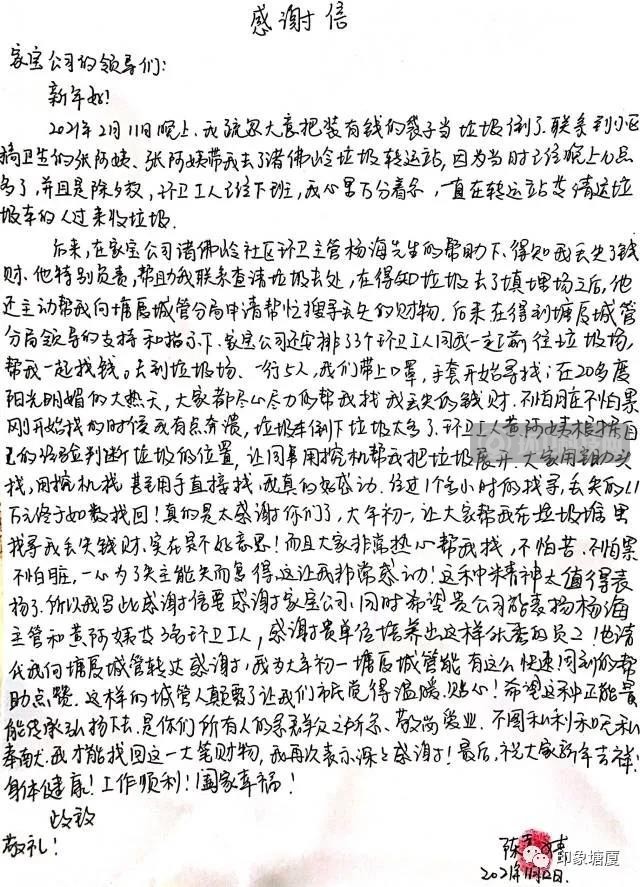 感谢信
家宝公司的领导们:
新年好!
2021年2月11日晚上,我疏忽大意把装有钱的袋子当垃圾倒了.联系到小区
搞卫生的张阿姨、张阿姨带我去了诸佛岭垃圾转运站,因为当时已经晚上九点
多了,并且是除夕夜,环卫工人已经下班,我心里万分着急,一直在转运站请运垃
圾车的人过来收垃圾.
后来,在家宝公司诸佛岭社区环卫主管杨海先生的帮助下,得知我丢失了钱
财.他特别负责,帮助我联系查询垃圾去处,在得知垃圾去了填埋场之后,他
还主动帮我向塘厦城管分局申请帮忙搜寻丢失的财物.后来在得到塘厦城管
分局领导的支持和指示下,家宝公司还安排了3个环卫工人同我一起前往垃圾场,
帮我一起找钱.去到垃圾场、一行5人,我们带上口罩,手套开始寻找;在20多度
阳光明媚的大热天,大家都尽心尽力的帮我找我丢失的钱财.不怕脏不怕累
刚开始找的时候我有点奔溃,垃圾车倒下垃圾太多了.环卫工人黄阿姨根据自
己的经验判断垃圾的位置,让同事用挖机帮我把垃圾展开.大家用锄头
找,用挖机找 甚至用手直接找.我真的好感动.经过1个多小时的找寻,丢失的1.1
万元终于如数找回!真的是太感谢你们了,大年初一,让大家帮我在垃圾堆里
找寻我丢失钱财.实在是不好意思!而且大家非常热心帮我找,不怕苦.不怕累
不怕脏,一心为了失主能失而复得.这让我非常感动!这种精神太值得表
扬了.所以我写此感谢信要感谢家宝公司.同时希望贵公司能表扬杨海
主管和黄阿姨及3名环卫工人,感谢贵单位培养出这样优秀的员工!也请
代我向塘厦城管转达感谢,我为大年初一塘厦城管能有这么快速周到的帮
助点赞.这样的城管人颠覆了让我们市民觉得温暖.贴心!希望这种正能量
能传承弘扬下去.是你们所有人的急群众之所急、敬岗爱业.不图私利和无私
奉献.我才能找回这一大笔财物,我再次表示深深感谢!最后,祝大家新年吉祥!
身体健康!工作顺利!阖家幸福!
此致
敬礼!
陈
2021年
印象塘厦